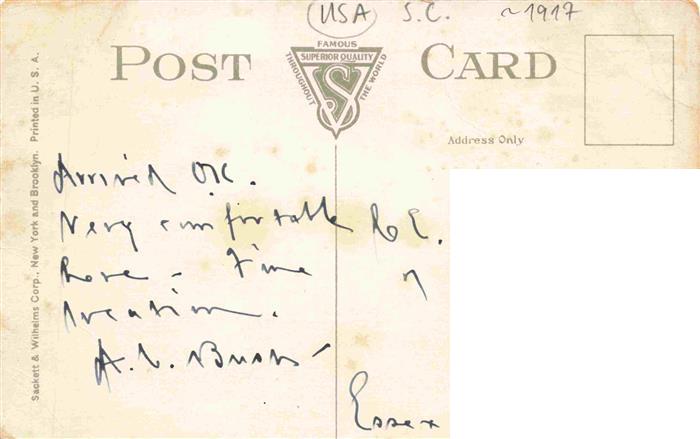 (USA) S.C. ~1917
POST CARD
FAMOUS
SUPERIOR QUALITY
THROUGHOUT THE WORLD
Address Only
Sackett & Wilhelms Corp., New York and Brooklyn. Printed in U. S. A.
Arrived O.K.
Very comfortable
here - Fine
location.
R E.
Essex